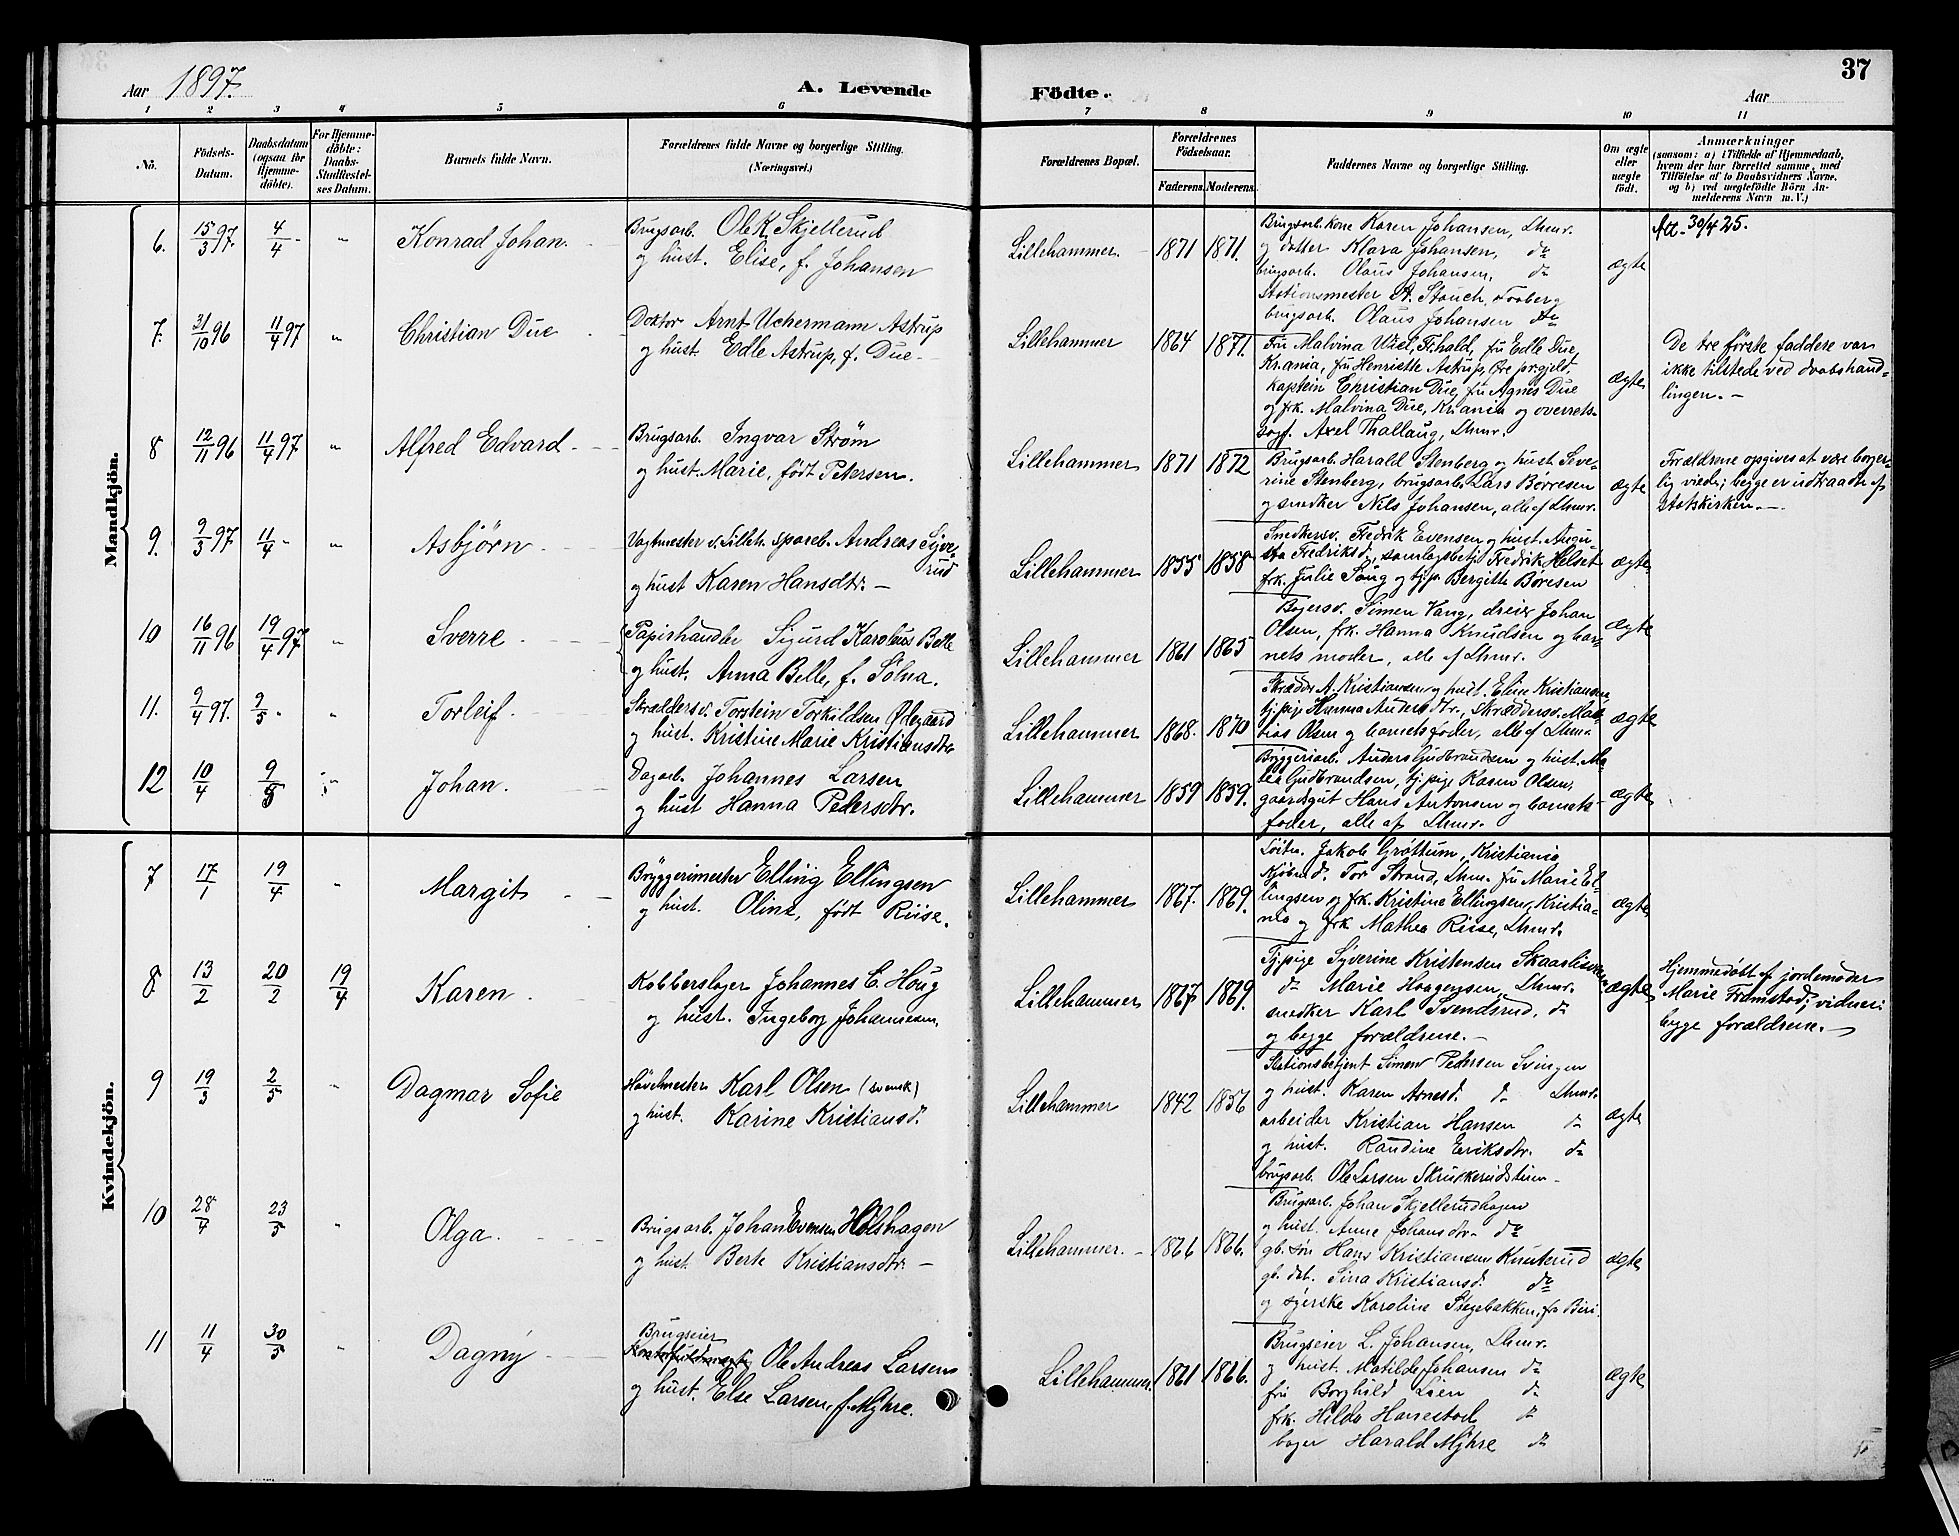 37
Aar 1897. A. Levende Födte. Aar
1 2 3 4 5 6 7 8 9 10 11
No. Födsels-Datum. Daabsdatum (ogsaa for Hjemme-döbte). For Hjemme-döbte: Daabs-Stadfæstel-ses Datum. Barnets fulde Navn. Forældrenes fulde Navne og borgerlige Stilling. (Næringsvei.) Forældrenes Bopæl. Forældrenes Födselsaar. Faderens. Moderens. Faddernes Navne og borgerlige Stilling. Om ægte eller uægte födt. Anmærkninger
(saasom: a) i Tilfælde af Hjemmedaab,
hvem der har forrettet samme, med
Tilföielse af to Daabsvidners Navne,
og b) ved uægtefödte Börn An-
melderens Navn m. V.)
Mandkjön.
6. 15/3 97. 4/4 - " Konrad Johan. Brugsarb. Ole K. Skjellerud
og hust. Elise, f. Johansen
Lillehammer. 1871 1871.
Brugsarb. kone Karen Johansen, Lhmr.
og datter Klara Johansen, do
brugsarb. Olaus Johansen, do
Stationsmester A. Stauch, Faaberg
brugsarb. Olaus Johansen do
ægte
Att. 30/4 25.
7. 31/10 96 11/4 97 " Christian Due Doktor Arnt Uchermann Astrup
og hust. Edle Astrup, f. Due.
Lillehammer 1864 1871.
Fru Malvina Wiel, F.hald, fru Edle Due,
Kr.ania, fru Henriette Astrup, Øre prgjeld,
kaptein Christian Due, fru Agnes Due
og frk. Malvina Due, Kr.ania og overrets-
sagf. Axel Thallaug, Lhmr.
ægte
De tre første faddere var
ikke tilstede ved daabshand-
lingen. -
8 12/11 96 11/4 97 " Alfred Edvard. Brugsarb. Ingvar Strøm
og hust. Marie, født Petersen.
Lillehammer 1871 1872
Brugsarb. Harald Stenberg og hust. Seve-
rine Stenberg, brugsarb. Lars Børresen
og snedker Nils Johansen, alle af Lhmr.
ægte
Forældrene opgives at være borger-
lig viede; begge er udtraadte af
statskirken. -
9. 9/3 97 11/4 - " Asbjørn. Vagtmester v. Lilleh. spareb. Andreas Syve-
rud
og hust Karen Hansdtr. -
Lillehammer 1855 1858
Snedkersv. Fredrik Evensen og hust. Augu-
sta Fredriksd., samlagsbetj. Fredrik Helset
frk. Julie Saug og tj.p. Bergitte Børesen
ægte
10 16/11 96 19/4 97 " Sverre. Papirhandler Sigurd Karolius Belle
og hust. Anna Belle, f. Sølna.
Lillehammer 1861 1865
Bagersv. Simen Vang, dreier Johan
Olsen, frk. Hanna Knudsen og bar-
nets moder, alle af Lhmr.
ægte
11. 9/4 97. 9/5 - " Torleif. Skræddersv. Torstein Torkildsen Ødegaard
og hust. Kristine Marie Kristiansdtr
Lillehammer 1868. 1870
Skrædder A. Kristiansen og hust. Eline Kristiansen
tj.pige Hanna Andersdtr., skræddersv. Mat-
tias Olsen og barnets fader, alle af Lhmr.
ægte
12 10/4 9/5 " Johan. Dagarb. Johannes Larsen
og hust Hanna Pedersdtr.
Lillehammer 1859 1859.
Bryggeriarb. Anders Gudbrandsen og hust. Ma-
tea Gudbrandsen, tj.pige Karen Olsen,
gaardsgut Hans Antonsen og barnets
fader, alle af Lhmr.
ægte
Kvindekjön.
7 17/1 19/4 " Margit Bryggerimester Elling Ellingsen
og hust. Oline, født Riise.
Lillehammer 1867. 1869.
Løitn. Jakob Grøttum, Kristiania
Kjøbmd. Tor Strand, Lhmr. fru Marie El-
lingsen og frk. Kristine Ellingsen, Kristia-
nia og frk Mathea Riise, Lhmr.
ægte
8. 13/2 20/2 19/4 Karen Kobberslager Johannes C. Houg
og hust. Ingeborg Johannesen.
Lillehammer 1867 1869.
Tj.pige Syverine Kristensen Skaarliseter
do Marie Haagensen, Lhmr.
snedker Karl Svendsrud, do
og begge forældrene. -
ægte
Hjemmedøbt af jordemoder
Marie Framstad; vidner:
begge forældrene. -
9 19/3 2/5 " Dagmar Sofie Høvelmester Karl Olsen (svensk)
og hust. Karine Kristiansd.
Lillehammer 1842 1856
Stationsbetjent Simen Pedersen Svingen
og hust. Karen Arnesd. do Lhmr.
arbeider Kristian Hansen do
og hust. Randine Eriksdtr. do
brugsarb. Ole Larsen Skruskerudsteien
ægte
10 28/4 23/5 " Olga. Brugsarb. Johan Evensen Holshagen
og hust. Berte Kristiansdtr. -
Lillehammer. 1866 1866.
Brugsarb. Johan Skjellerudhagen
og hust. Anne Johansdtr. do
gb. søn Hans Kristiansen Knuterud
gb. dat. Sina Kristiansd. do
og syerske Karoline Stegebakken, fra Biri.
ægte
11 11/4 30/5 " Dagny Brugseier
Ole Andreas Larsen
og hust. Else Larsen, f. Myhre.
Lillehammer. 1861 1866.
Brugseier L. Johansen, Lhmr.
og hust. Matilde Johansen do
fru Borghild Lien do
frk. Hilda Hanestad do
bager Harald Myhre do
ægte